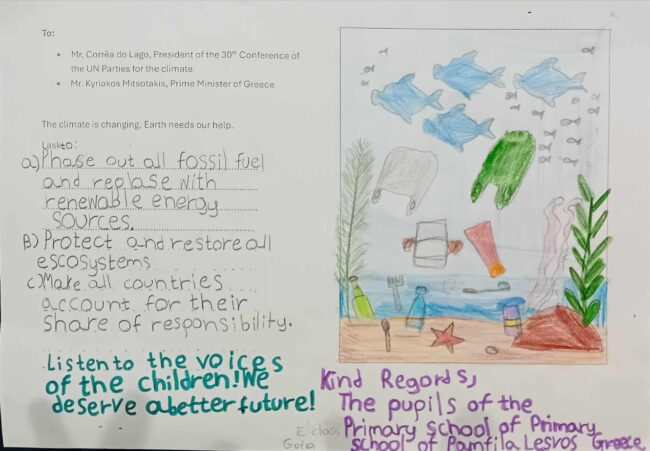 To:
• Mr. Corrêa do Lago, President of the 30th Conference of
the UN Parties for the climate
• Mr. Kyriakos Mitsotakis, Prime Minister of Greece
The climate is changing. Earth needs our help.
I ask to:
a) Phase out all fossil fuel
and replase with
renewable energy
sources.
B) Protect and restore all
escosystems
c) Make all countries
account for their
share of responsibility.
Listen to the voices
of the children! We
deserve a better future!
Kind Regords,
The pupils of the
Primary school of Primary
school of Pamfila Lesvos Greece
E' class